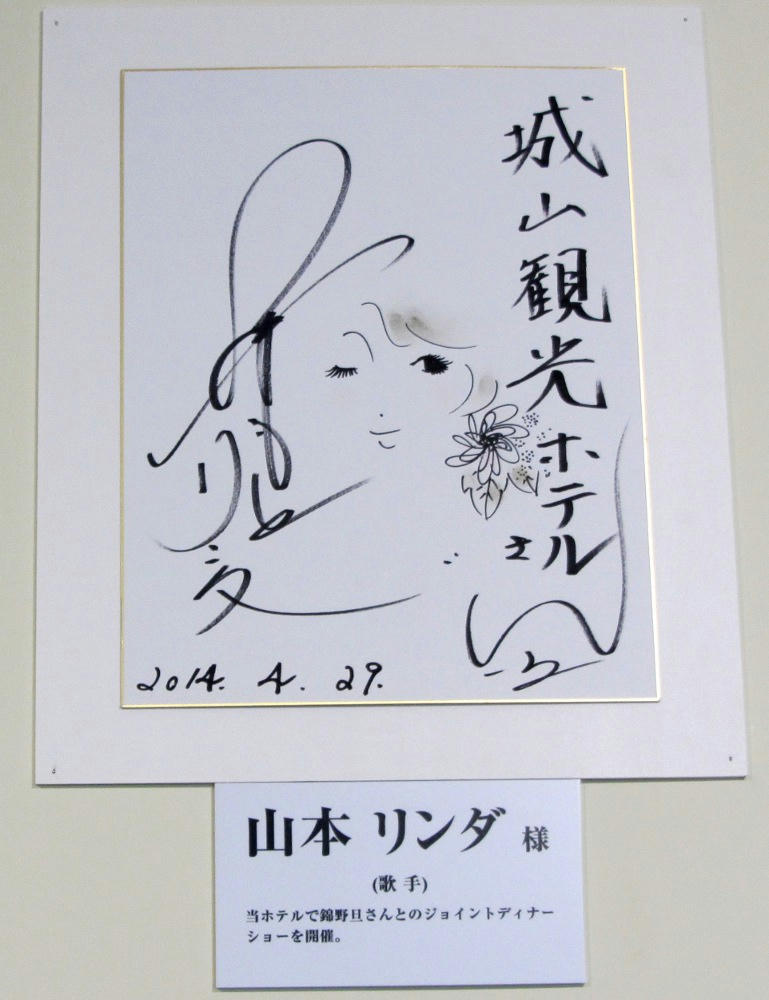 城山観光ホテル
さん江
2014. 4. 29.
山本 リンダ 様
(歌 手)
当ホテルで錦野旦さんとのジョイントディナー
ショーを開催。